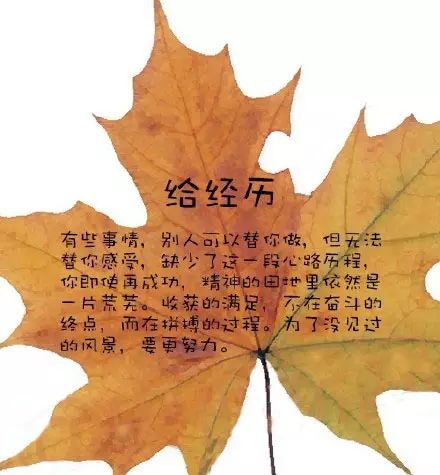 给经历
有些事情，别人可以替你做，但无法
替你感受，缺少了这一段心路历程，
你即使再成功，精神的田地里依然是
一片荒芜。收获的满足，不在奋斗的
终点，而在拼搏的过程。为了没见过
的风景，要更努力。